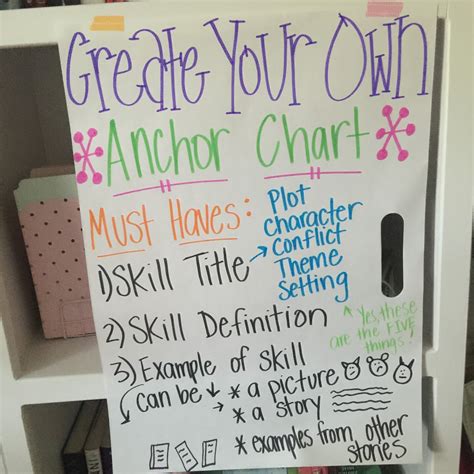 Create Your Own
Anchor Chart
Must Haves:
Plot
Character
Conflict
Theme
Setting
1) Skill Title
2) Skill Definition
Yes, these
are the FIVE
things!
3) Example of Skill
can be
* a picture
* a story
* examples from other
stories